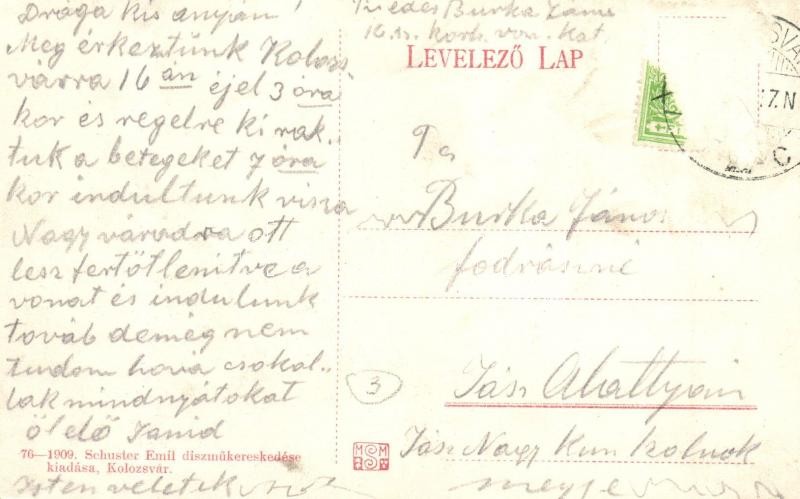 Drága kis anyám!
Meg érkeztünk Kolozs
várra 16 án éjel 3 óra
kor és regelre ki rak..
tuk a betegeket 7 óra
kor indultunk visza
Nagy váradra ott
lesz fertötlenitve a
vonat és indulunk
továb demég nem
tudom hová csokol..
lak mindnyátokat
ölelő Jancid
76—1909. Schuster Emil diszműkereskedése
kiadása, Kolozsvár.
Isten veletek
Burka János
16 sz. von. kat.
LEVELEZŐ LAP
7.N
C
Burka János
fodrászné
3
Jász Alattyán
Jász Nagy Kun Szolnok
megye